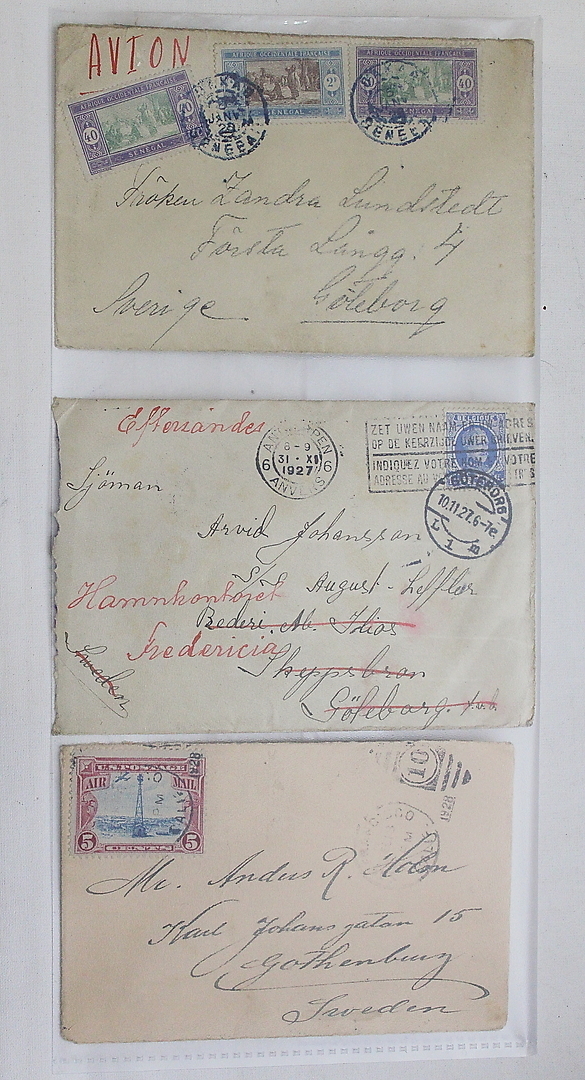 AVION
AFRIQUE OCCIDENTALE FRANÇAISE
40 40
SENEGAL
AFRIQUE OCCIDENTALE FRANÇAISE
2F
SENEGAL
AFRIQUE OCCIDENTALE FRANÇAISE
40 40
JANV
29
Fröken Zandra Lundstedt
Första Långg. 4
Sverige Göteborg
Eftersändes
ANTWERPEN
8-9
31 · X
1927
6 6
ANVERS
ZET UWEN NAAM ADRES
OP DE KEERZIJDE UWER BRIEVEN.
INDIQUEZ VOTRE NOM VOTRE
ADRESSE AU
BELGIQUE
GÖTEBORG
10.11.27.6-7e
L 1 n
Sjöman
Arvid Johansson
S/S August Leffler
Hamnkontoret
Rederi. Ab. Ilios
Fredericia
Skeppsbron
Sweden
Göteborg
U.S. POSTAGE
AIR MAIL
5 5
CENTS
1928
10
1928
Mr. Andus R. Holm
Karl Johansgatan 15
Gothenburg
Sweden